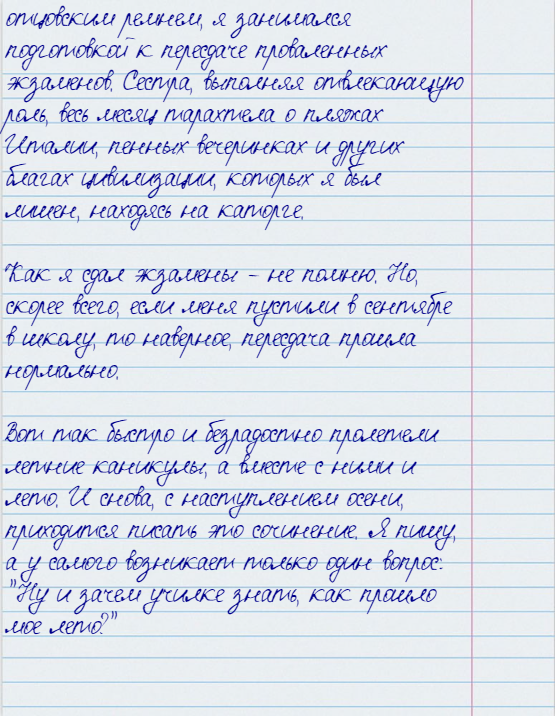 отцовским ремнем, я занимался
подготовкой к пересдаче проваленных
экзаменов. Сестра, выполняя отвлекающую
роль, весь месяц тарахтела о пляжах
Италии, пенных вечеринках и других
благах цивилизации, которых я был
лишен, находясь на каторге.
Как я сдал экзамены - не помню. Но,
скорее всего, если меня пустили в сентябре
в школу, то наверное, пересдача прошла
нормально.
Вот так быстро и безрадостно пролетели
летние каникулы, а вместе с ними и
лето. И снова, с наступлением осени,
приходится писать это сочинение. Я пишу,
а у самого возникает только один вопрос:
"Ну и зачем училке знать, как прошло
мое лето?"